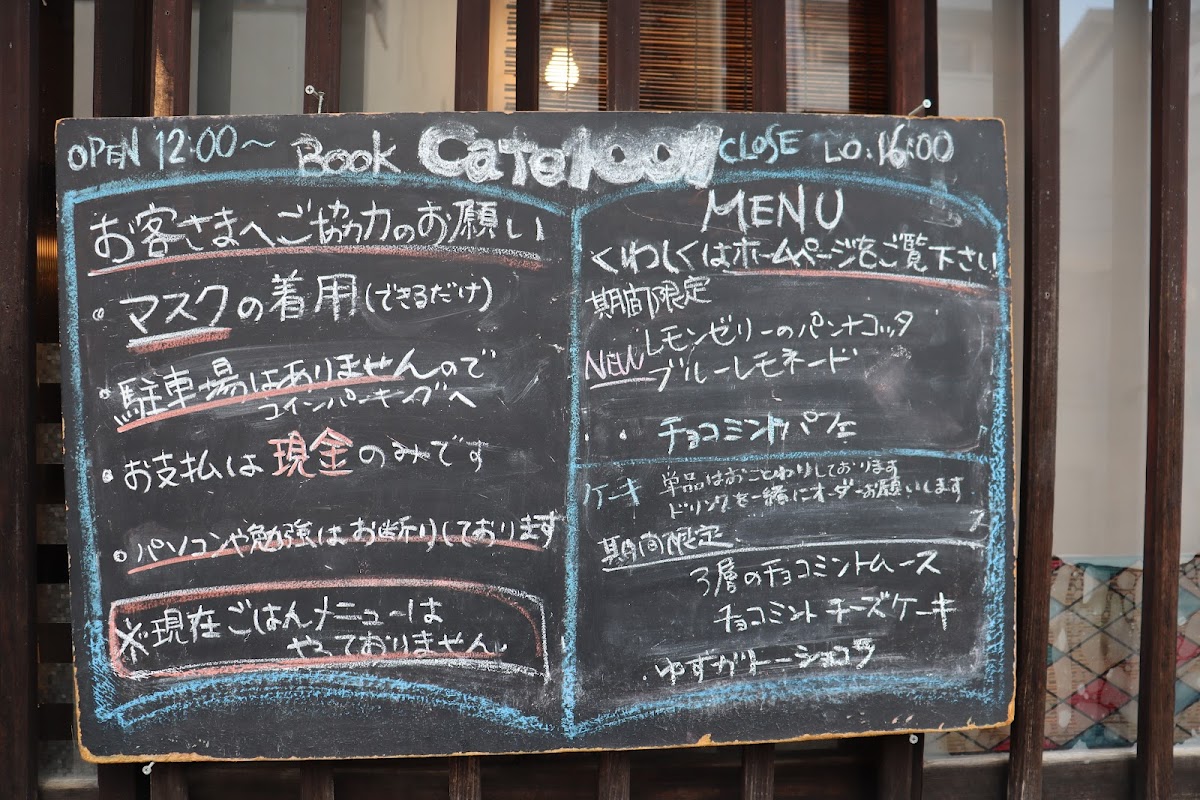 OPEN 12:00〜 BOOK Cafe1001 CLOSE LO.16:00
お客さまへご協力のお願い
・マスクの着用(できるだけ)
・駐車場はありませんので
コインパーキングへ
・お支払は現金のみです
・パソコンや勉強はお断りしております
※現在ごはんメニューは
やっておりません
MENU
くわしくはホームページをご覧下さい
期間限定
NEW レモンゼリーのパンナコッタ
ブルーレモネード
・チョコミントパフェ
ケーキ 単品はおことわりしております
ドリンクを一緒にオーダーお願いします
期間限定
3層のチョコミントムース
チョコミントチーズケーキ
・ゆずガトーショコラ